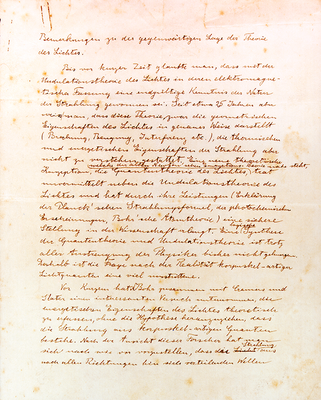 Bemerkungen zu der gegenwärtigen Lage der Theorie
des Lichtes.
Bis vor kurzer Zeit glaubte man, dass mit der
Undulationstheorie des Lichtes in deren elektromagne-
tischer Fassung eine endgültige Kenntnis der Natur
der Strahlung gewonnen sei. Seit etwa 25 Jahren aber
weiss man, dass diese Theorie zwar die geometrischen
Eigenschaften des Lichtes in genauer Weise darstellt
(Brechung, Beugung, Interferenz etc.), die thermischen
und energetischen Eigenschaften der Strahlung aber
nicht zu verstehen gestattet. Eine neue theoretische
Konzeption, die Quantentheorie des Lichtes, trat
unvermittelt neben die Undulationstheorie des
Lichtes und hat durch ihre Leistungen (Erklärung
der Planck'schen Strahlungsformel, der photochemischen
Erscheinungen, Bohr'sche Atomtheorie) eine sichere
Stellung in der Wissenschaft erlangt. Eine Synthese
der Quantentheorie und Undulationstheorie ist trotz
aller Anstrengung der Physiker bisher nicht gelungen.
Deshalb ist die Frage nach der Realität korpuskel-artiger
Lichtquanten eine viel umstrittene.
Vor Kurzem hat Bohr zusammen mit Cramers und
Slater einen interessanten Versuch unternommen, die
energetischen Eigenschaften des Lichtes theoretisch
zu erfassen, ohne die Hypothese heranzuziehen, dass
die Strahlung aus korpuskel-artigen Quanten
bestehe. Nach der Ansicht dieser Forscher hat man
sich nach wie vor vorzustellen, dass die Strahlung aus
nach allen Richtungen hin sich verteilenden Wellen